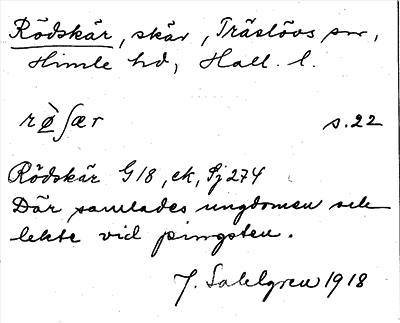 Rödskär, skär, Träslövs sn,
Himle hd, Hall. l.
rø̀ʃær s. 22
Rödskär G18, ek, Sj 274
Där samlades ungdomen och
lekte vid pingsten.
J. Sahlgren 1918